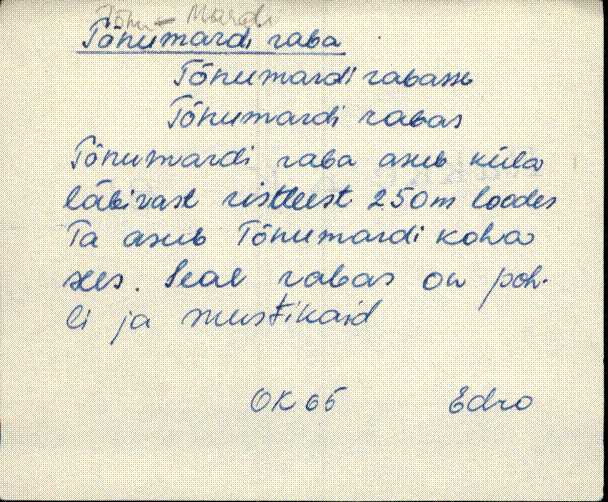 Tõnu-Mardi
Tõnumardi raba
Tõnumardi rabasse
Tõnumardi rabas
Tõnumardi raba asub küla
läbivast ristteest 250m loodes
Ta asub Tõnumardi koha
sees. Seal rabas on poh-
li ja mustikaid
OK 65 Edro